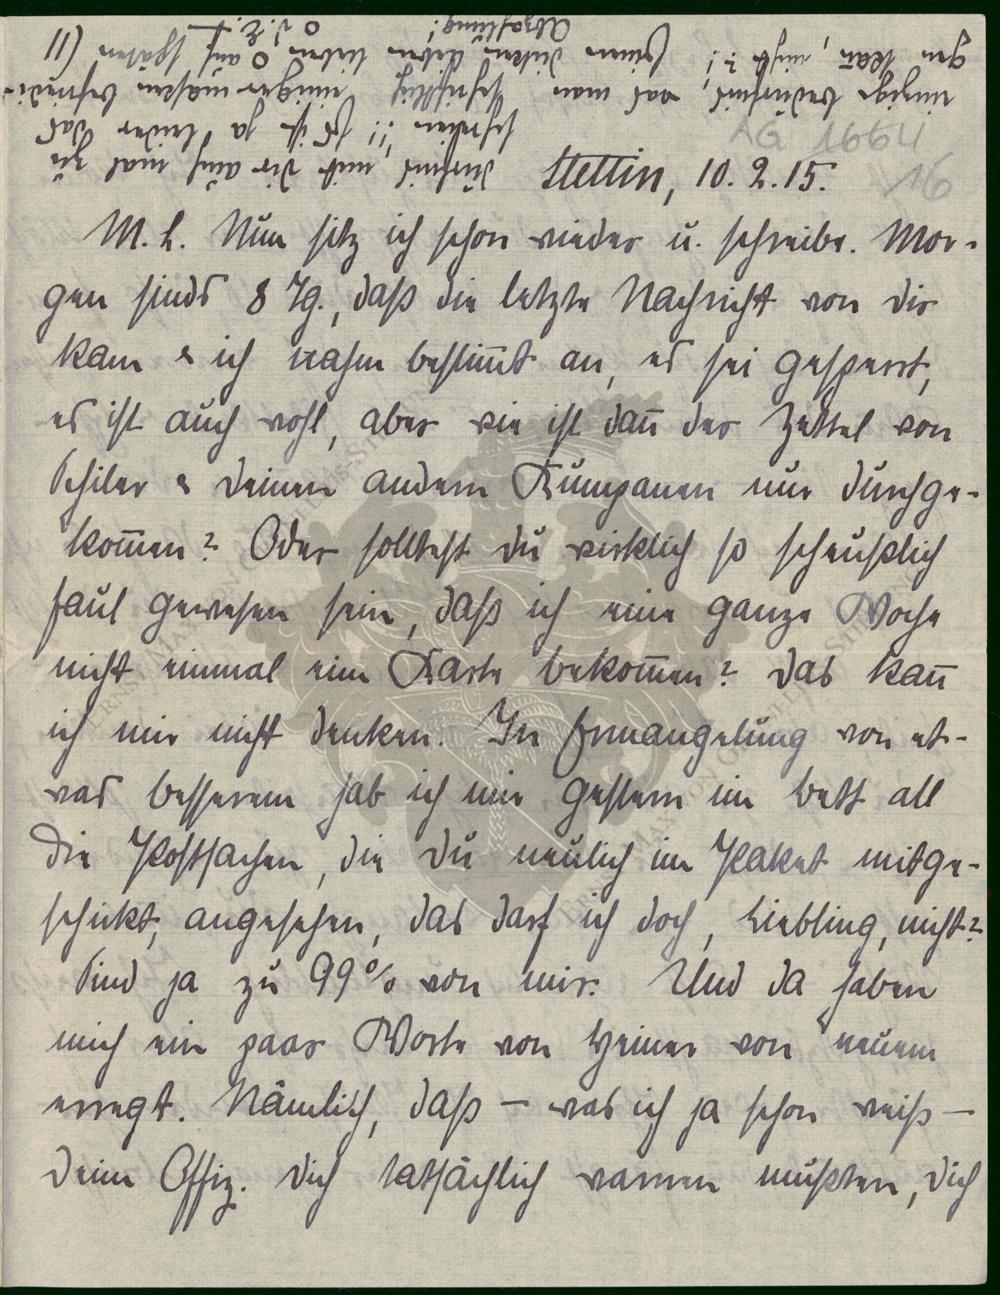 Stettin, 10. 2. 15.
M. L. Nun sitz ich schon wieder u. schreibe. Mor-
gen sinds 8 Tg., daß die letzte Nachricht von dir
kam & ich nahm bestim̅t an, es sei gesperrt,
es ist auch wohl, aber wie ist dan̅ der Zettel von
Schiler & deinen andern Kumpanen nur durchge-
kom̅en? Oder solltest du wirklich so scheußlich
faul gewesen sein, daß ich eine ganze Woche
nicht einmal eine Karte bekom̅en? Das kan̅
ich mir nicht denken. In Ermangelung von et-
was besserem hab ich mir gestern im Bett all
die Postsachen, die du neulich im Paket mitge-
schickt, angesehen, das darf ich doch, Liebling, nicht?
Sind ja zu 99% von mir. Und da haben
mich ein paar Worte von Heiner von neuem
erregt. Nämlich, daß – was ich ja schon weiß –
deine Offiz. dich tatsächlich warnen mußten, dich
dürfnis, mit dir auch mal zu
schreien!! Es ist ja leider das
einzige Bedürfnis, das man schriftlich einigermaßen befriedi-
gen kan̅, nicht?! Einen dicken lieben lieben
Abzahlung!
AG 1664
/16